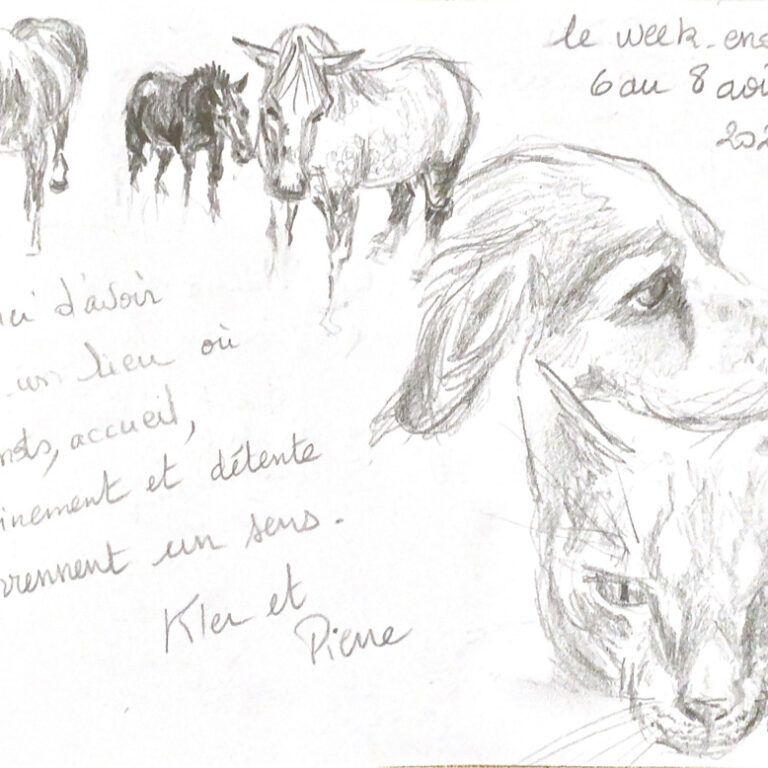 le week-end
6 au 8 août
d'avoir
un lieu où
accueil,
et détente
prennent un sens.
Kler et
Pierre